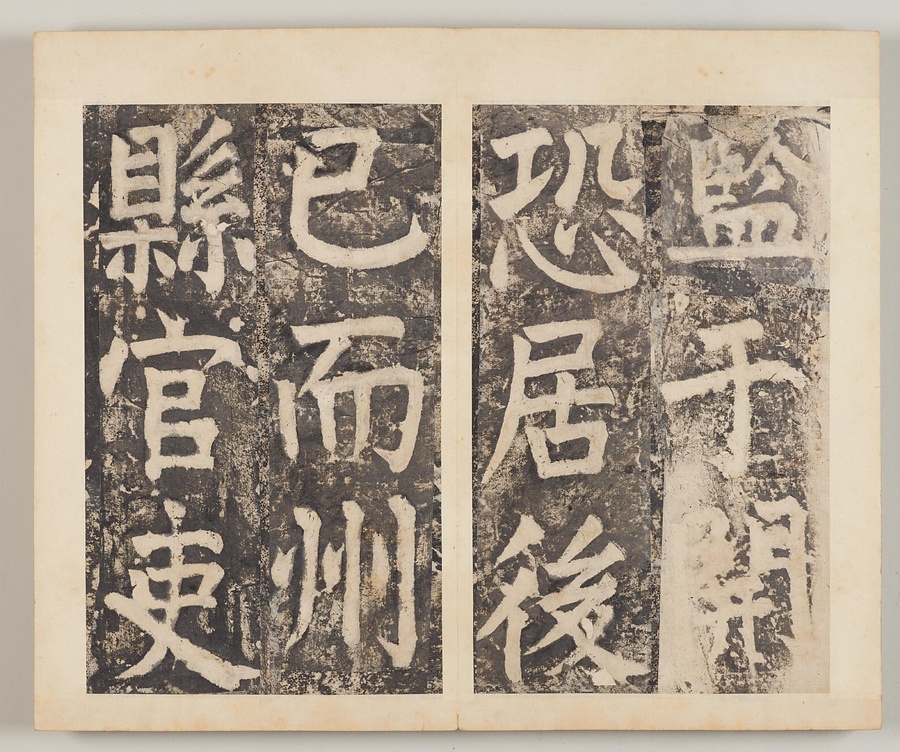 監于開
恐居後
已而州
縣官吏